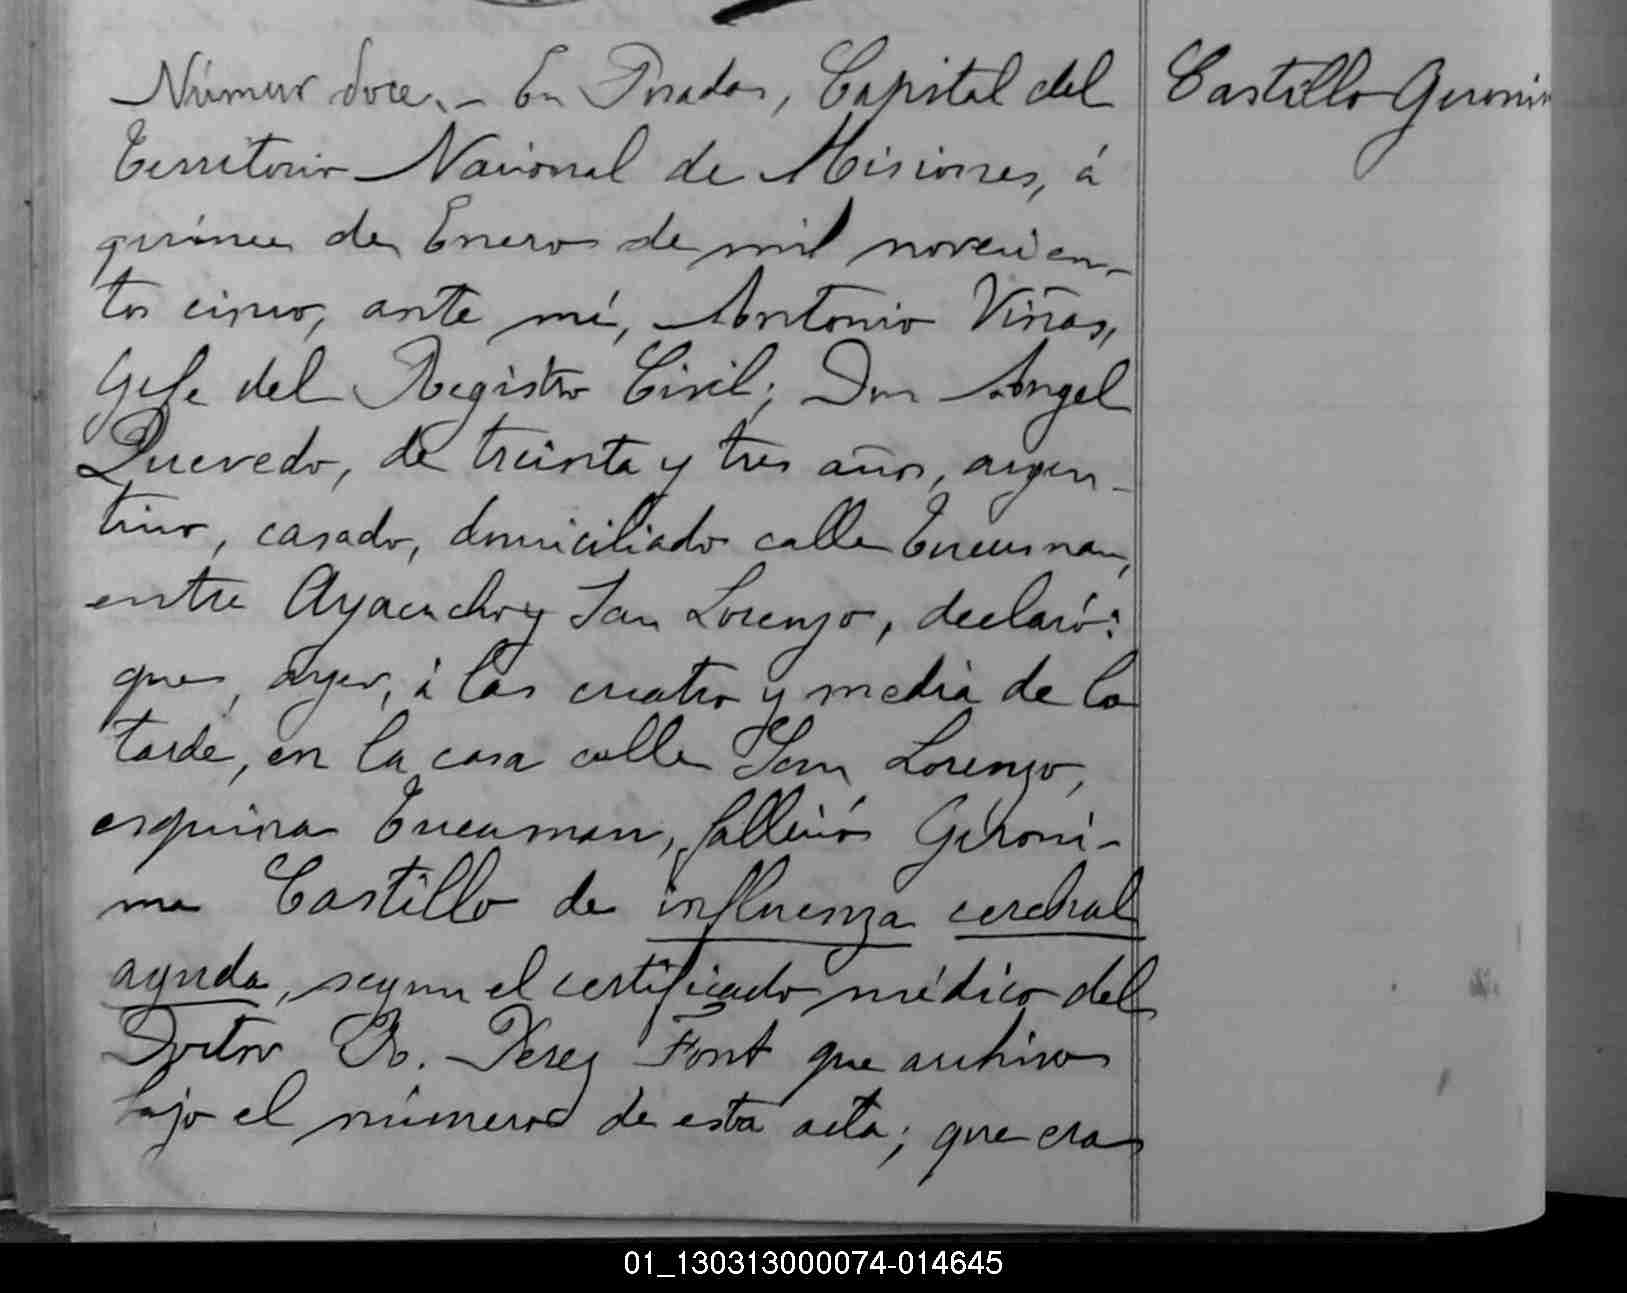 Número doce.- En Posadas, Capital del
Castillo Geroni
Territorio Nacional de Misiones, á
quince de Enero de mil novecien-
tos cinco, ante mí, Antonio Viñas,
Gefe del Registro Civil; Don Angel
Quevedo, de treinta y tres años, argen-
tino, casado, domiciliado calle Tucuman,
entre Ayacucho y San Lorenzo, declaró:
que, ayer, á las cuatro y media de la
tarde, en la casa calle San Lorenzo,
esquina Tucuman, falleció Geroni-
ma Castillo de influenza cerebral
aguda, segun el certificado médico del
Doctor R. Perez Font que archivo
bajo el número de esta acta; que era
01_130313000074-014645